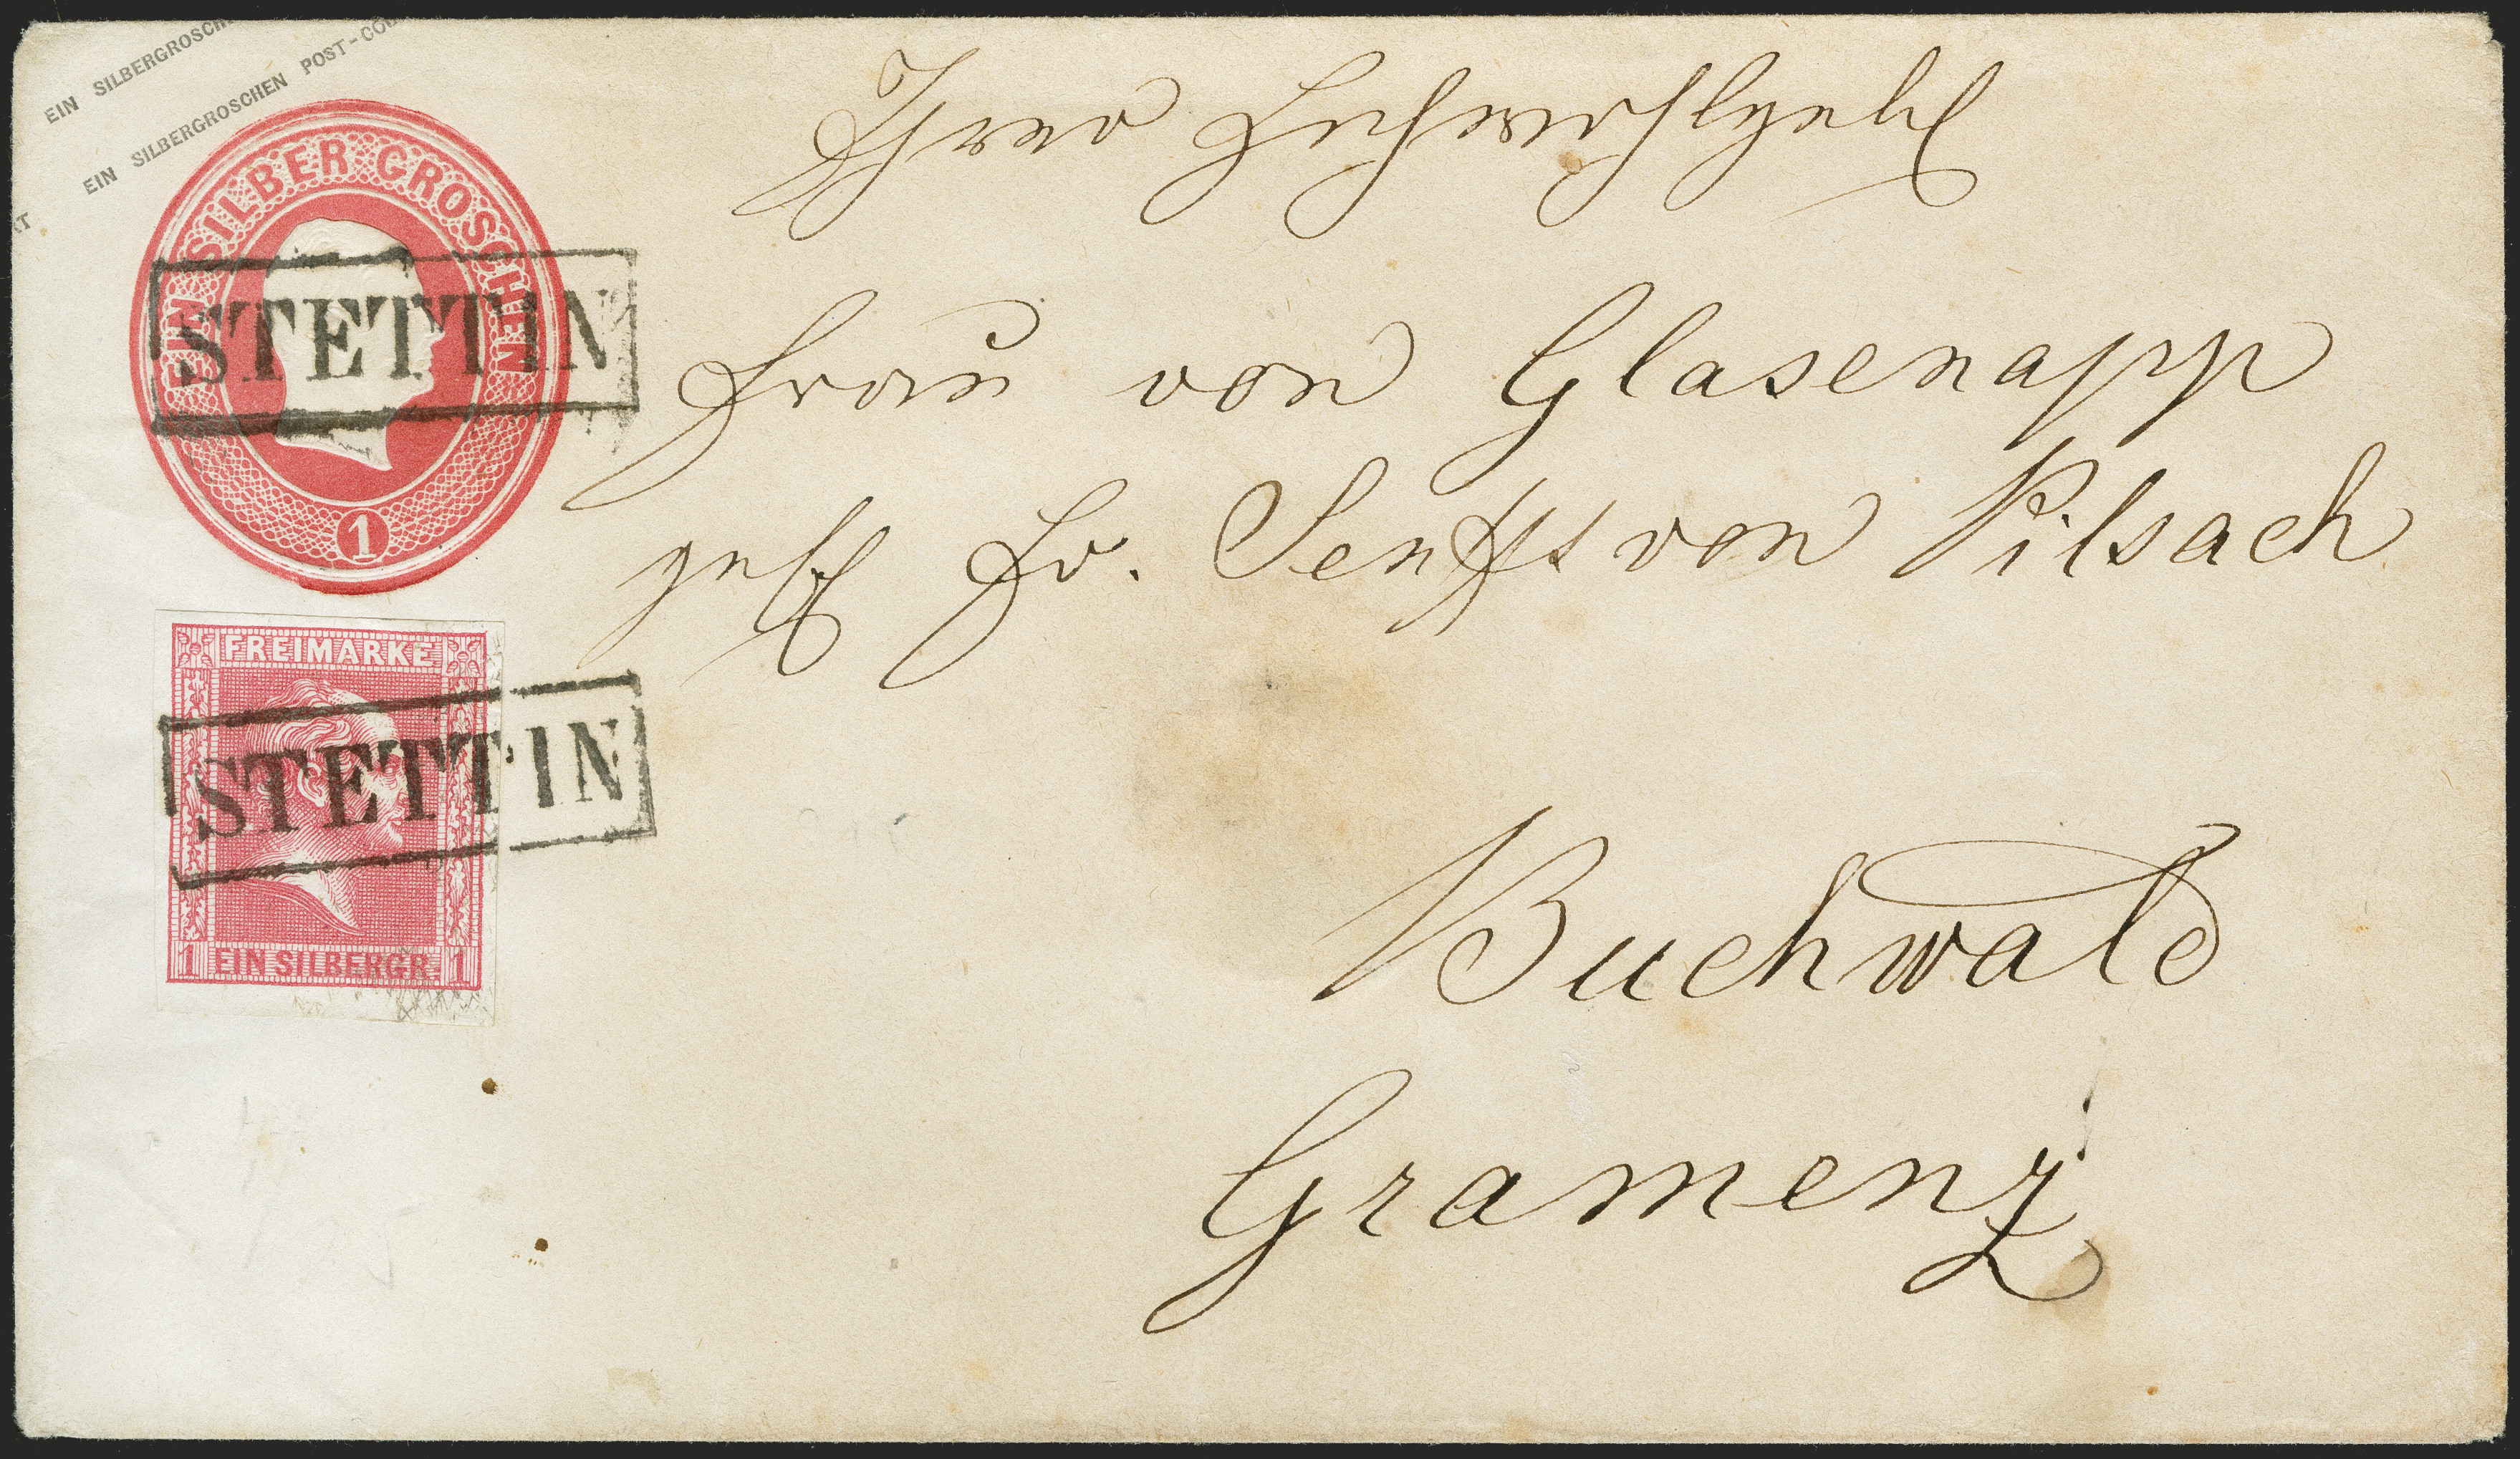 EIN SILBERGROSCH
EIN SILBERGROSCHEN POST-COU
EIN SILBER GROSCHEN
1
STETTIN
FREIMARKE
STETTIN
1 EIN SILBERGR. 1
Ihrer Hochwohlgeb
Frau von Glasenapp
geb Fr. Senfft von Pilsach
Buchwald
Gramenz